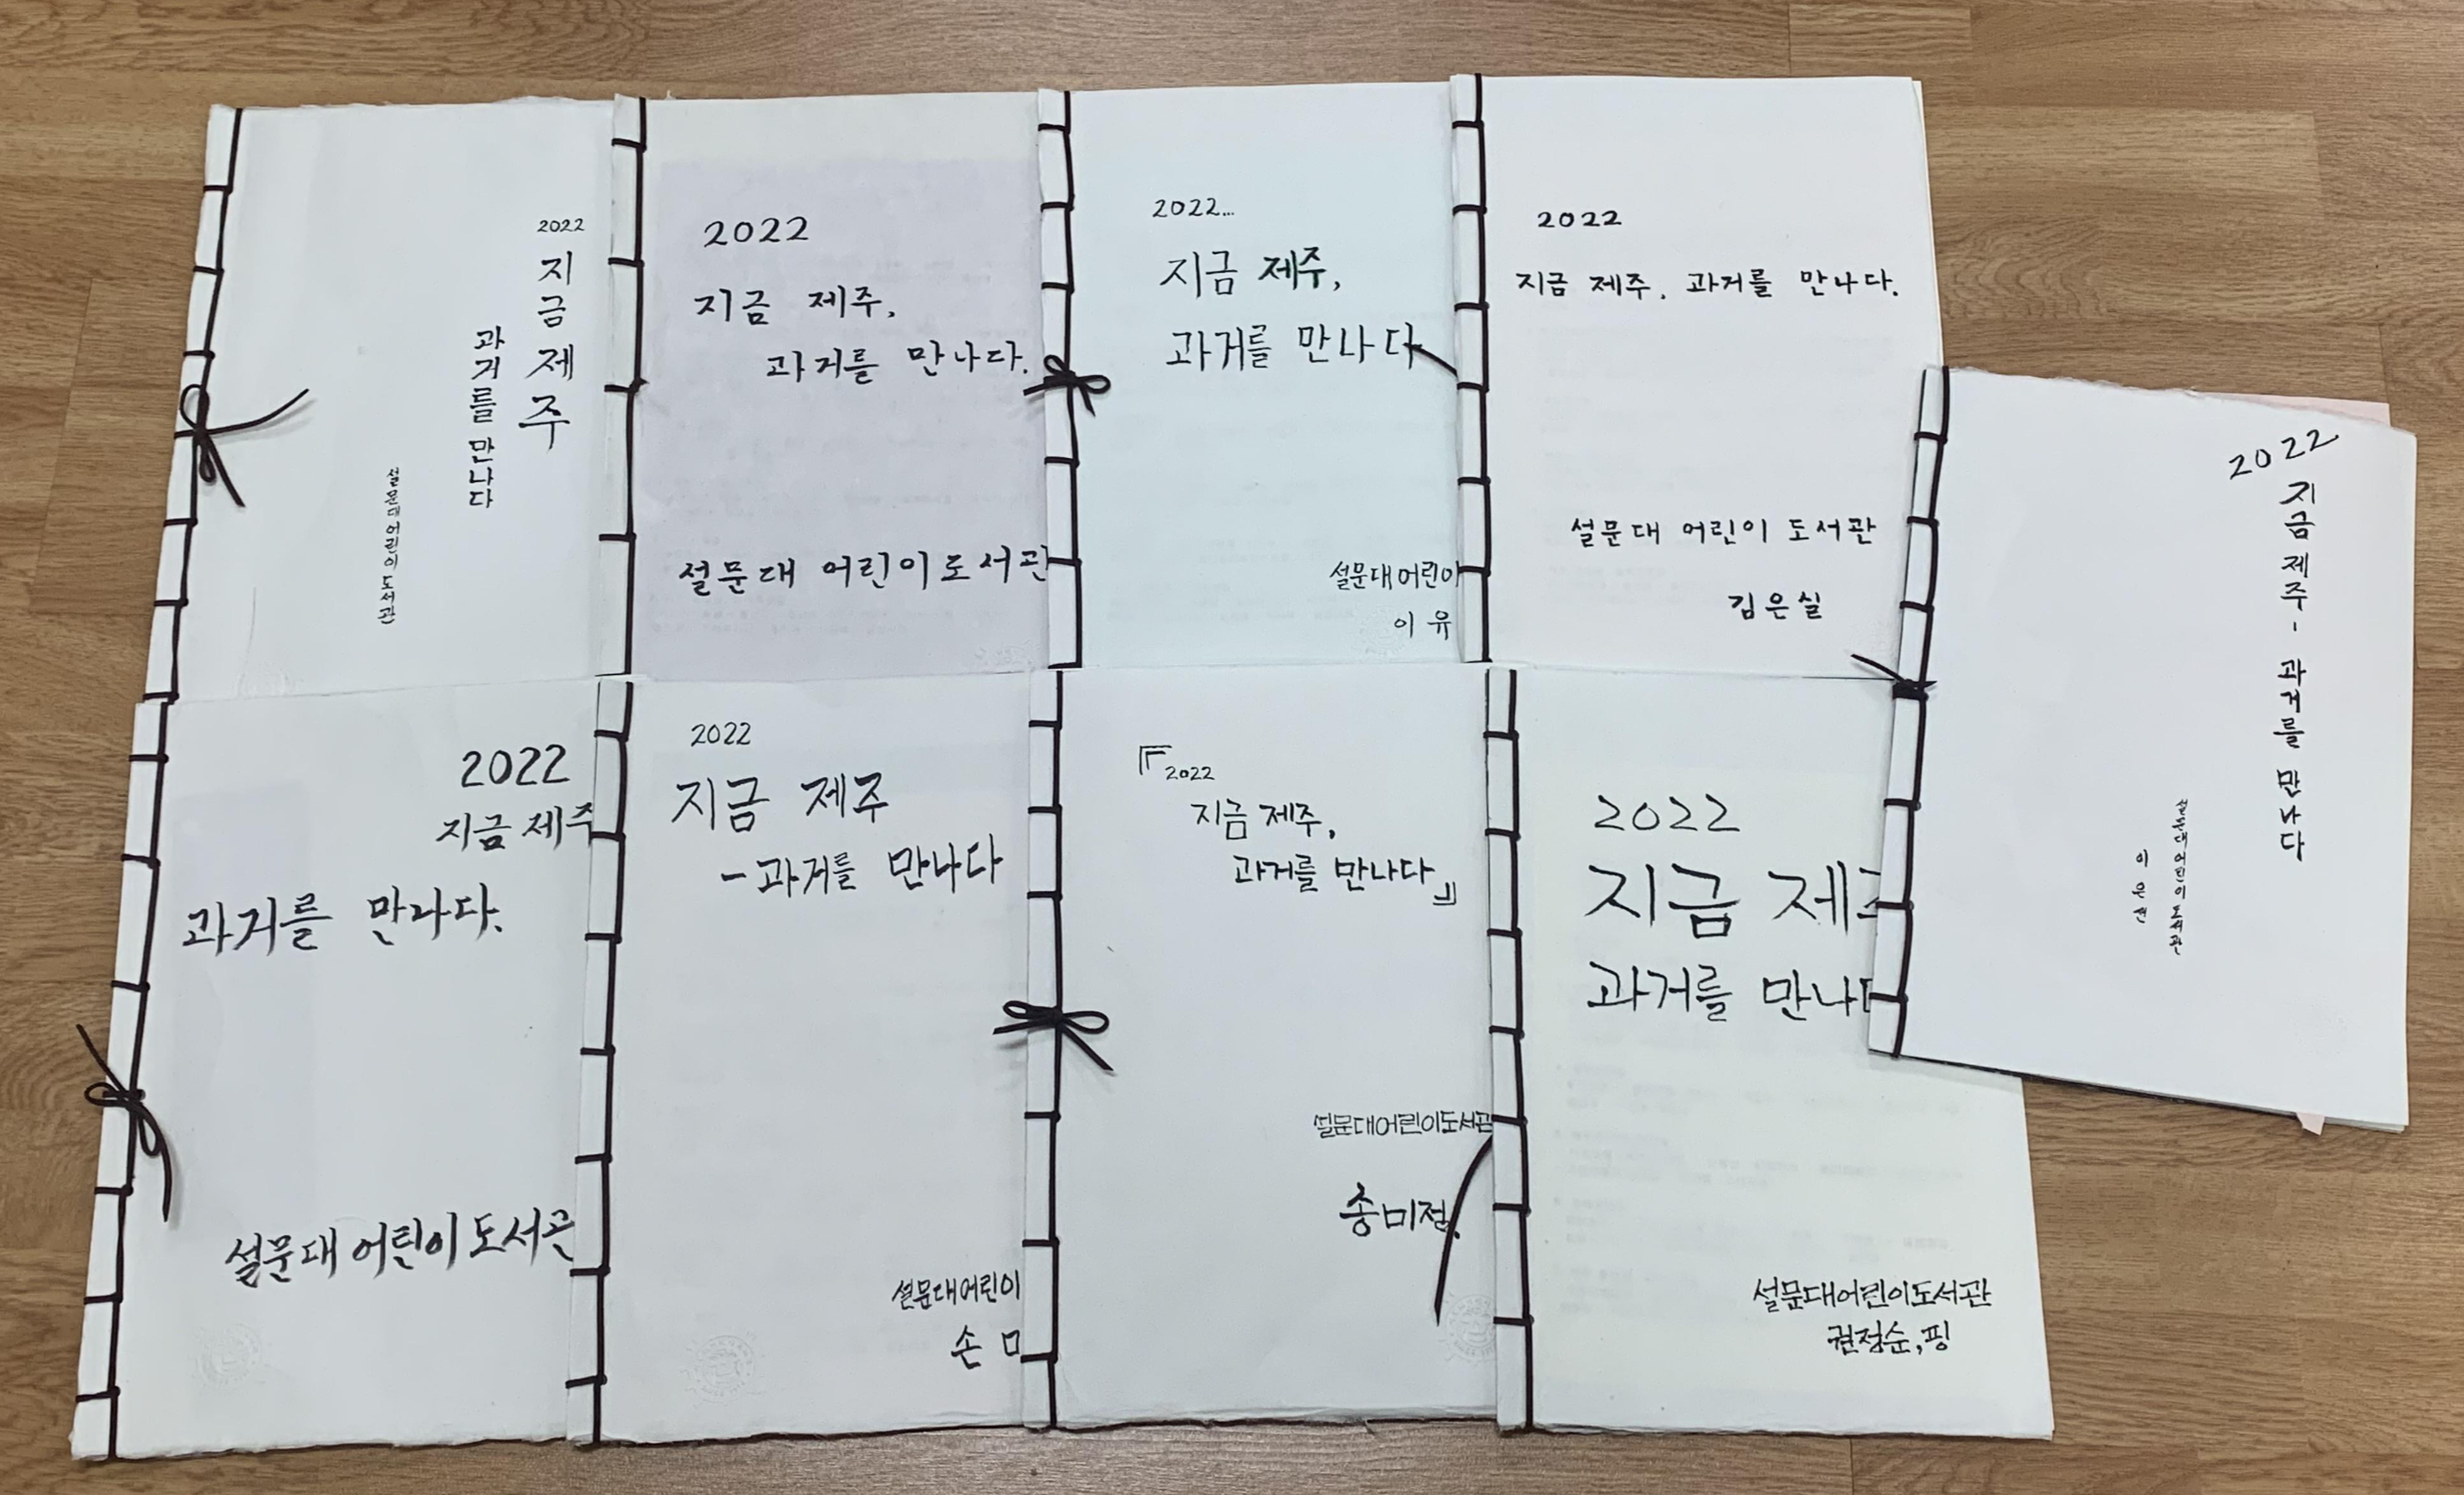 2022
지금 제주
과거를 만나다
설문대어린이도서관
2022
지금 제주,
과거를 만나다.
설문대 어린이도서관
2022...
지금 제주,
과거를 만나다
설문대어린이
이유
2022
지금 제주, 과거를 만나다.
설문대 어린이 도서관
김은실
2022
지금 제주 - 과거를 만나다
설문대어린이도서관
이은
2022
지금 제주
과거를 만나다.
설문대 어린이도서관
2022
지금 제주
-과거를 만나다
설문대어린이
손
『2022
지금 제주,
과거를 만나다』
설문대어린이도서관
송미정.
2022
지금 제주
과거를 만나다
설문대어린이도서관
권정순,핑